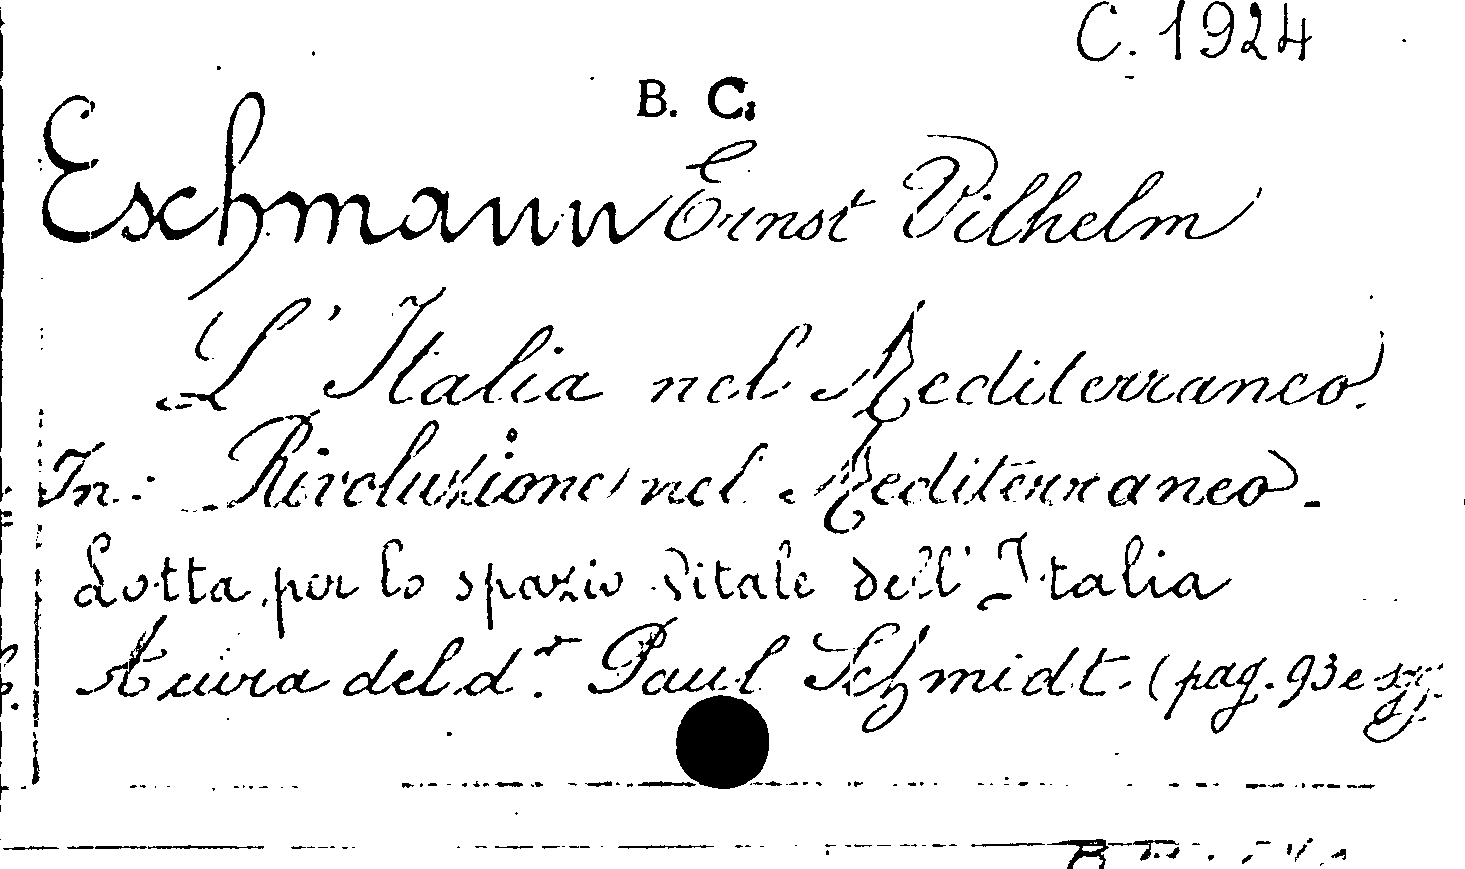 C. 1924
B. C.
Eschmann Ernst Vilhelm
L'Italia nel Mediterraneo.
In: Rivoluzione nel Mediterraneo.
Lotta per lo spazio vitale dell'Italia
A cura del d.r Paul Schmidt. (pag. 93 e sgg.